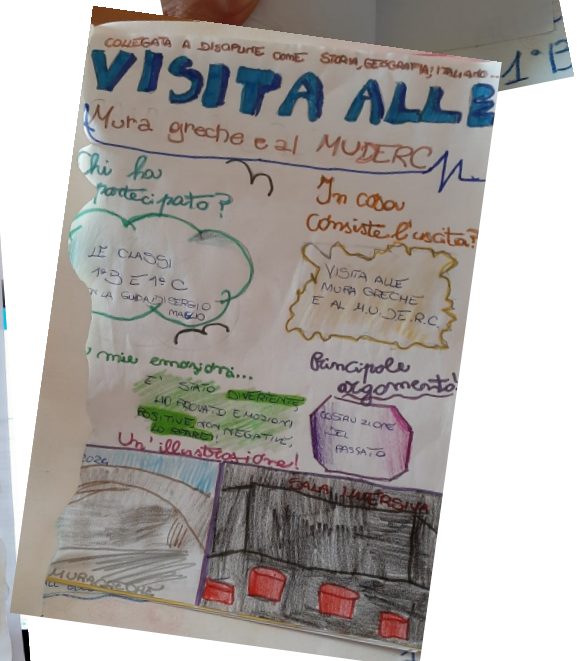 COLLEGATA A DISCIPLINE COME STORIA, GEOGRAFIA, ITALIANO...
1°B
VISITA ALLE
Mura greche e al MUDERC
Chi ha
partecipato?
LE CLASSI
1°B E 1°C
LA GUIDA DI SERGIO
MAGLIO
In cosa
consiste l'uscita?
VISITA ALLE
MURA GRECHE
E AL M.U.DE.R.C.
mie emozioni...
E' STATO DIVERTENTE,
HO PROVATO EMOZIONI
POSITIVE NON NEGATIVE,
LO RIFAREI
Principale
argomento:
COSTRUZIONE
DEL
PASSATO
Un'illustrazione!
2024
MURA GRECHE
SALA IMMERSIVA